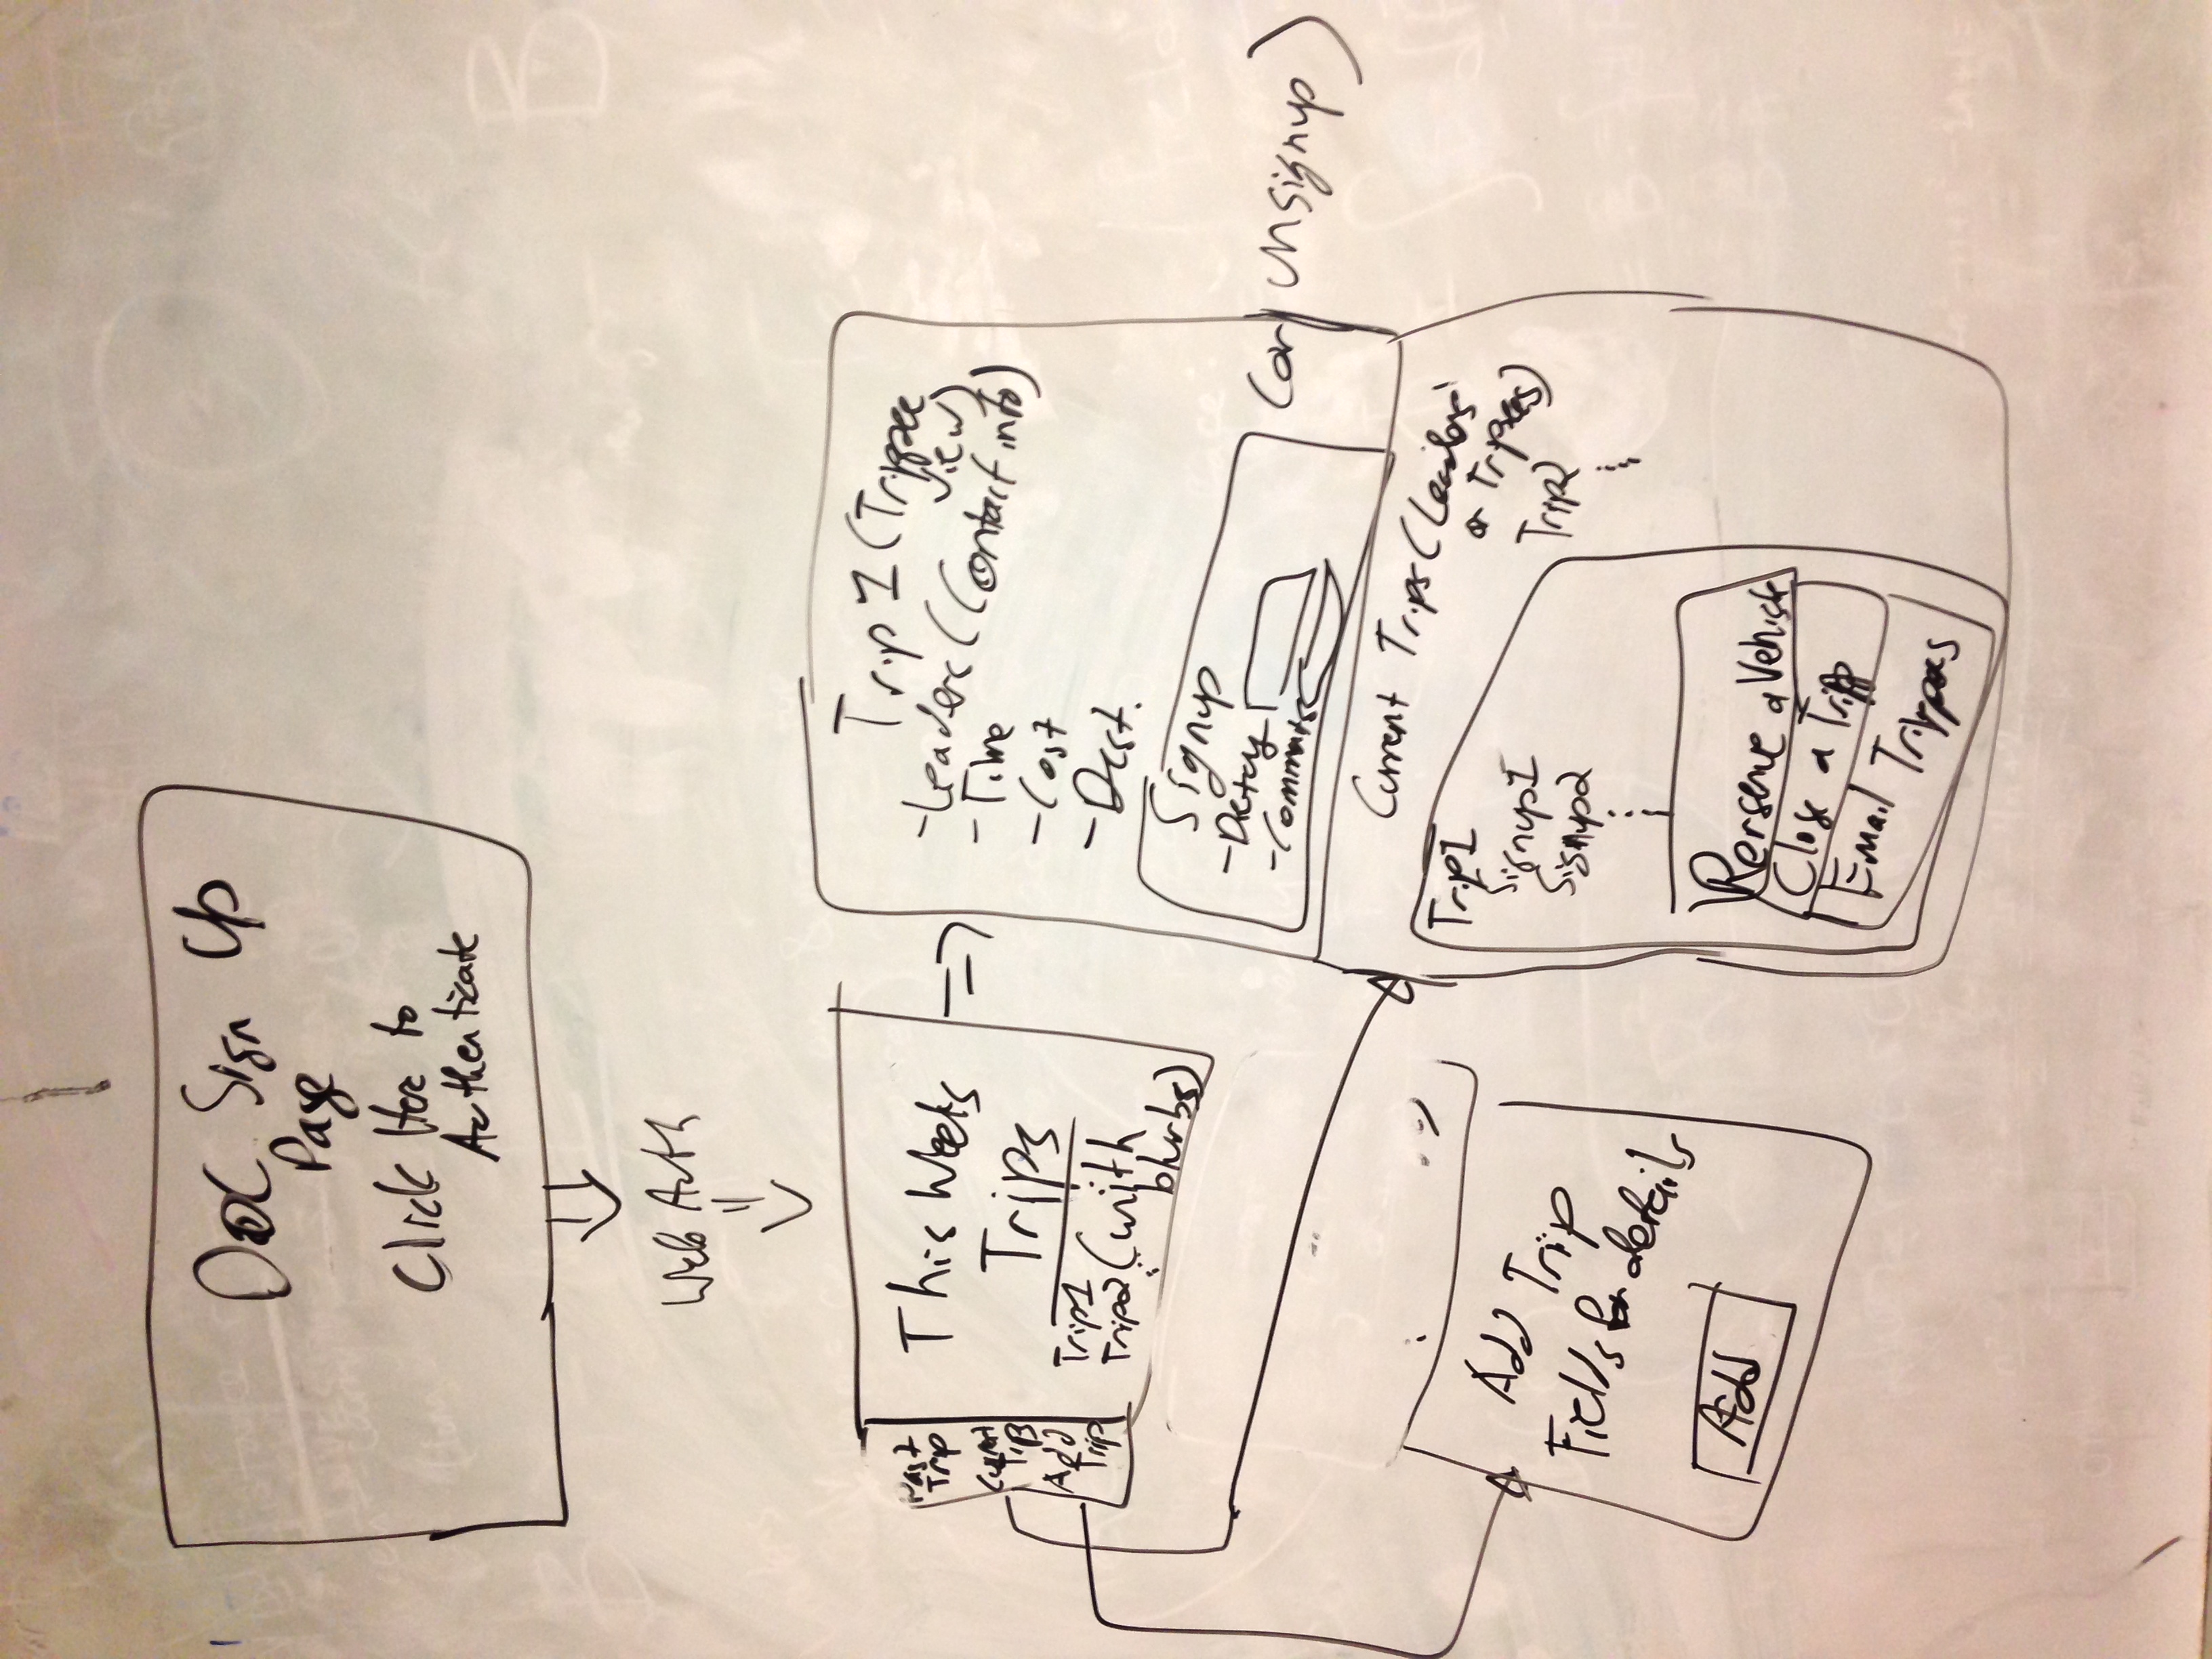 DOC Sign Up
Page
Click Here to
Authenticate
Web Auth
Past
Trip
Current
Trips
Add
Trip
This Weeks
Trips
Trip1
Trip2 (with
blurbs)
Trip 1 (Trippee
View)
-Leaders (Contact info)
-Time
-Cost
-Dest.
Signup
-Dietary
-Comments
(or unsignup)
Current Trips (Leaders
or Tripees)
Trip1
Signup1
Signup2
Trip2
Rerserve a Vehicle
Close a Trip
Email Trippees
Add Trip
Fields for details
Add